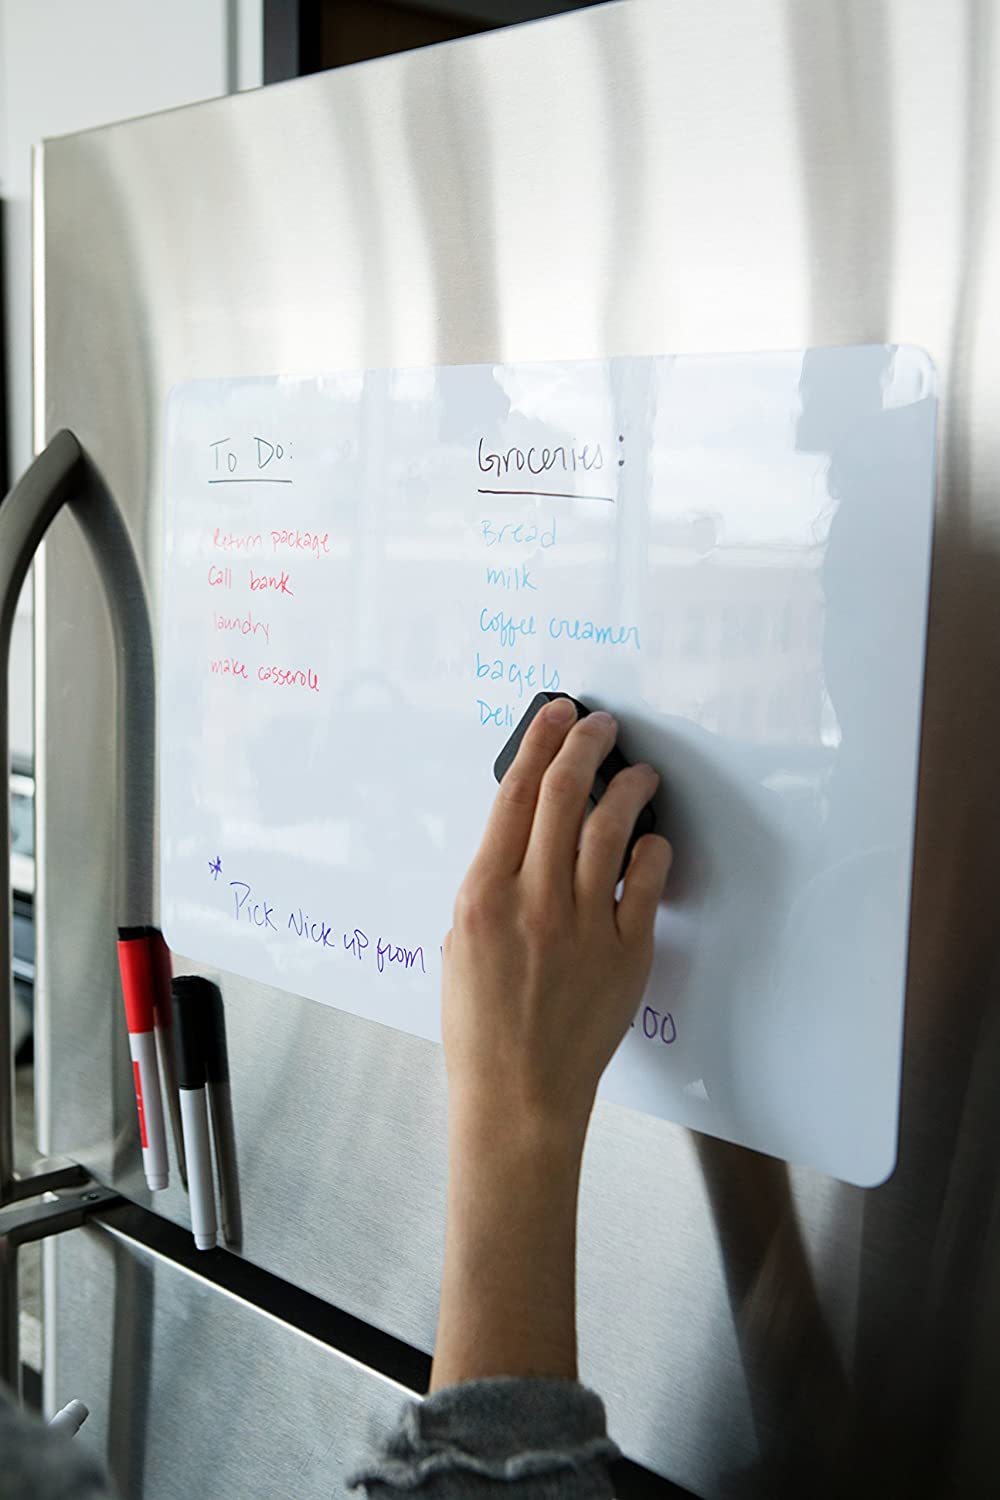 To Do:
Return package
Call bank
laundry
make casserole
Groceries:
Bread
milk
Coffee creamer
bagels
Deli
* Pick Nick up from
:00